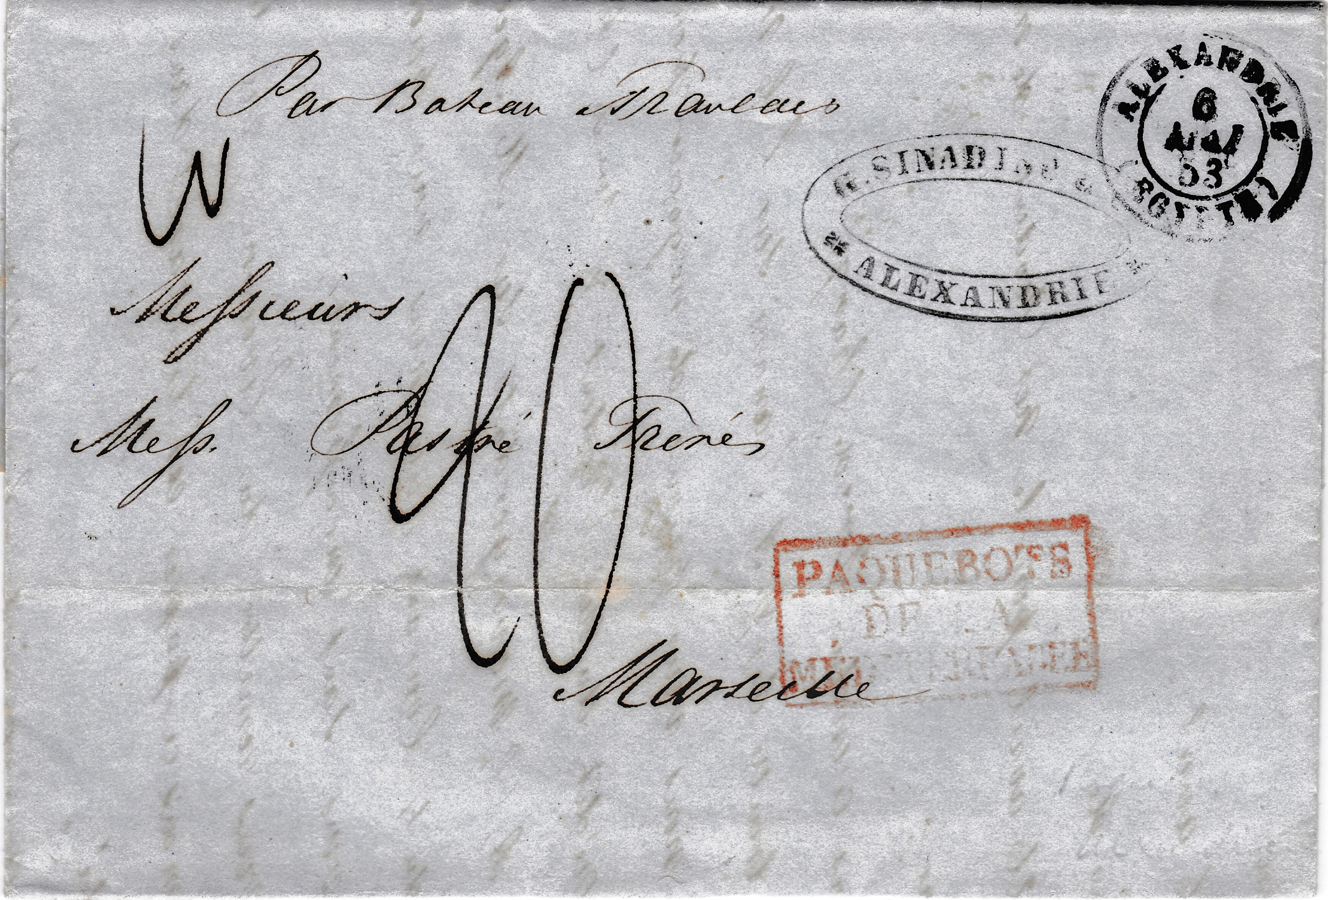 Par Bateau Francais
ALEXANDRIE
6
MAI
53
(EGYPTE)
G. SINADINO &
ALEXANDRIE
Messieurs
20
Mess. Pastré Frères
PAQUEBOTS
DE LA
MÉDITERRANEE
Marseille